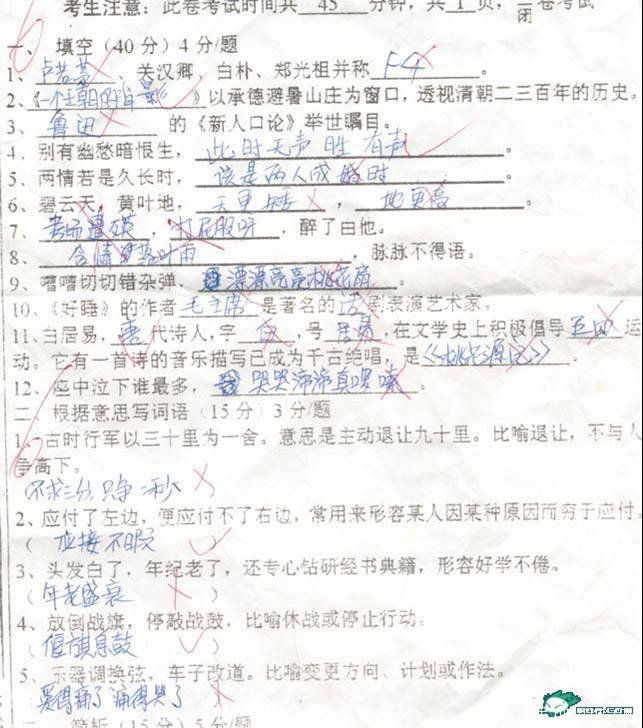 考生注意:此卷考试时间共 45 分钟,共 1 页,闭卷考试
一、填空(40分)4分/题
1、卢若菩、关汉卿、白朴、郑光祖并称 F4 。
2、《一个王朝的背影》以承德避暑山庄为窗口,透视清朝二三百年的历史。
3、 鲁迅 的《新人口论》举世瞩目。
4、别有幽愁暗恨生, 此时无声胜有声 。
5、两情若是久长时, 该是两人成婚时 。
6、碧云天,黄叶地, 天更 , 地更 。
7、 考场遭殃 , 打屁股呀 ,醉了由他。
8、 含情 落叶雨 ,脉脉不得语。
9、嘈嘈切切错杂弹, 漂漂亮亮桃花扇 。
10、《好睡》的作者 毛主席 是著名的 话 剧表演艺术家。
11、白居易, 唐 代诗人,字 白 ,号 居易 ,在文学史上积极倡导 五四 运
动。它有一首诗的音乐描写已成为千古绝唱,是《桃花源记》。
12、座中泣下谁最多, 哭哭啼啼真啰嗦 。
二、根据意思写词语(15分)3分/题
1、古时行军以三十里为一舍。意思是主动退让九十里。比喻退让,不与人
争高下。
(不求三分,只争二秒
2、应付了左边,便应付不了右边,常用来形容某人因某种原因而穷于应付。
( 应接不暇 )
3、头发白了,年纪老了,还专心钻研经书典籍,形容好学不倦。
( 年老盛衰 )
4、放倒战旗,停敲战鼓,比喻休战或停止行动。
(偃旗息鼓 )
5、乐器调换弦,车子改道。比喻变更方向、计划或作法。
哭得痛了 痛得哭了
三、简析(15分)5分/题